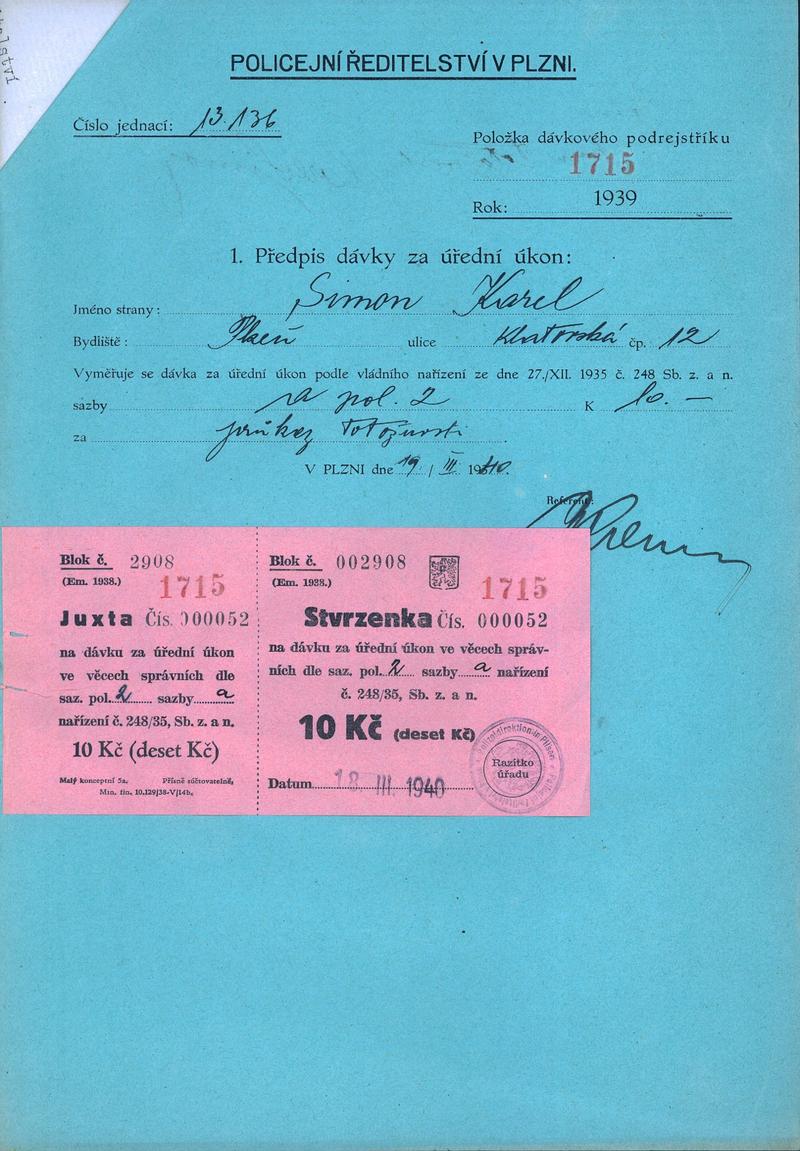 POLICEJNÍ ŘEDITELSTVÍ V PLZNI.
Číslo jednací: 13.136
Položka dávkového podrejstříku
1715
Rok: 1939
1. Předpis dávky za úřední úkon:
Jméno strany: Simon Karel
Bydliště: Plzeň ulice Klatovská čp. 12
Vyměřuje se dávka za úřední úkon podle vládního nařízení ze dne 27./XII. 1935 č. 248 Sb. z. a n.
sazby a pol. 2 K 10.—
za průkaz totožnosti
V PLZNI dne 19 / III. 1940.
Referent:
Blok č. 2908
(Em. 1938.) 1715
Juxta Čís. 000052
na dávku za úřední úkon
ve věcech správních dle
saz. pol. 2 sazby a
nařízení č. 248/35, Sb. z. a n.
10 Kč (deset Kč)
Malý konceptní 5a. Přísně súčtovatelné,
Min. fin. 10.129/38-V/14b.
Blok č. 002908
(Em. 1938.) 1715
Stvrzenka Čís. 000052
na dávku za úřední úkon ve věcech správ-
ních dle saz. pol. 2 sazby a nařízení
č. 248/35, Sb. z. a n.
10 Kč (deset Kč)
Datum 18. III. 1940
Razítko
úřadu
Polizeidirektion in Pilsen